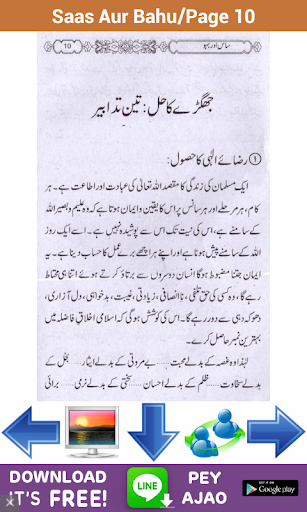 Saas Aur Bahu/Page 10
10
ساس اور بہو
جھگڑے کا حل: تین تدابیر
① رضائے الٰہی کا حصول:
ایک مسلمان کی زندگی کا مقصد اللہ تعالیٰ کی عبادت اور اطاعت ہے۔ ہر
کام، ہر مرحلے اور ہر سانس پر اس کا یقین و ایمان ہوتا ہے کہ وہ علیم و بصیر اللہ
کے سامنے ہے، اس کی نیت تک اس سے پوشیدہ نہیں ہے۔ اسے ایک روز
اللہ کے سامنے پیش ہونا ہے اور اپنے ہر اچھے برے عمل کا حساب دینا ہے۔
ایمان جتنا مضبوط ہوگا انسان دوسروں سے برتاؤ کرتے ہوئے اتنا ہی محتاط
رہے گا، وہ کسی کی حق تلفی، ناانصافی، زیادتی، غیبت، بدخواہی، دل آزاری،
دھوکہ دہی سے دور رہے گا۔ اس کی کوشش ہوگی کہ اسلامی اخلاقِ فاضلہ میں
بہترین نمبر حاصل کرے۔
لہٰذا وہ غصہ کے بدلے محبت ..... بے مروتی کے بدلے ایثار ..... بخل کے
بدلے سخاوت ..... ظلم کے بدلے احسان ..... سختی کے بدلے نرمی ..... برائی
DOWNLOAD
IT'S FREE!
LINE
PEY
AJAO
Google play